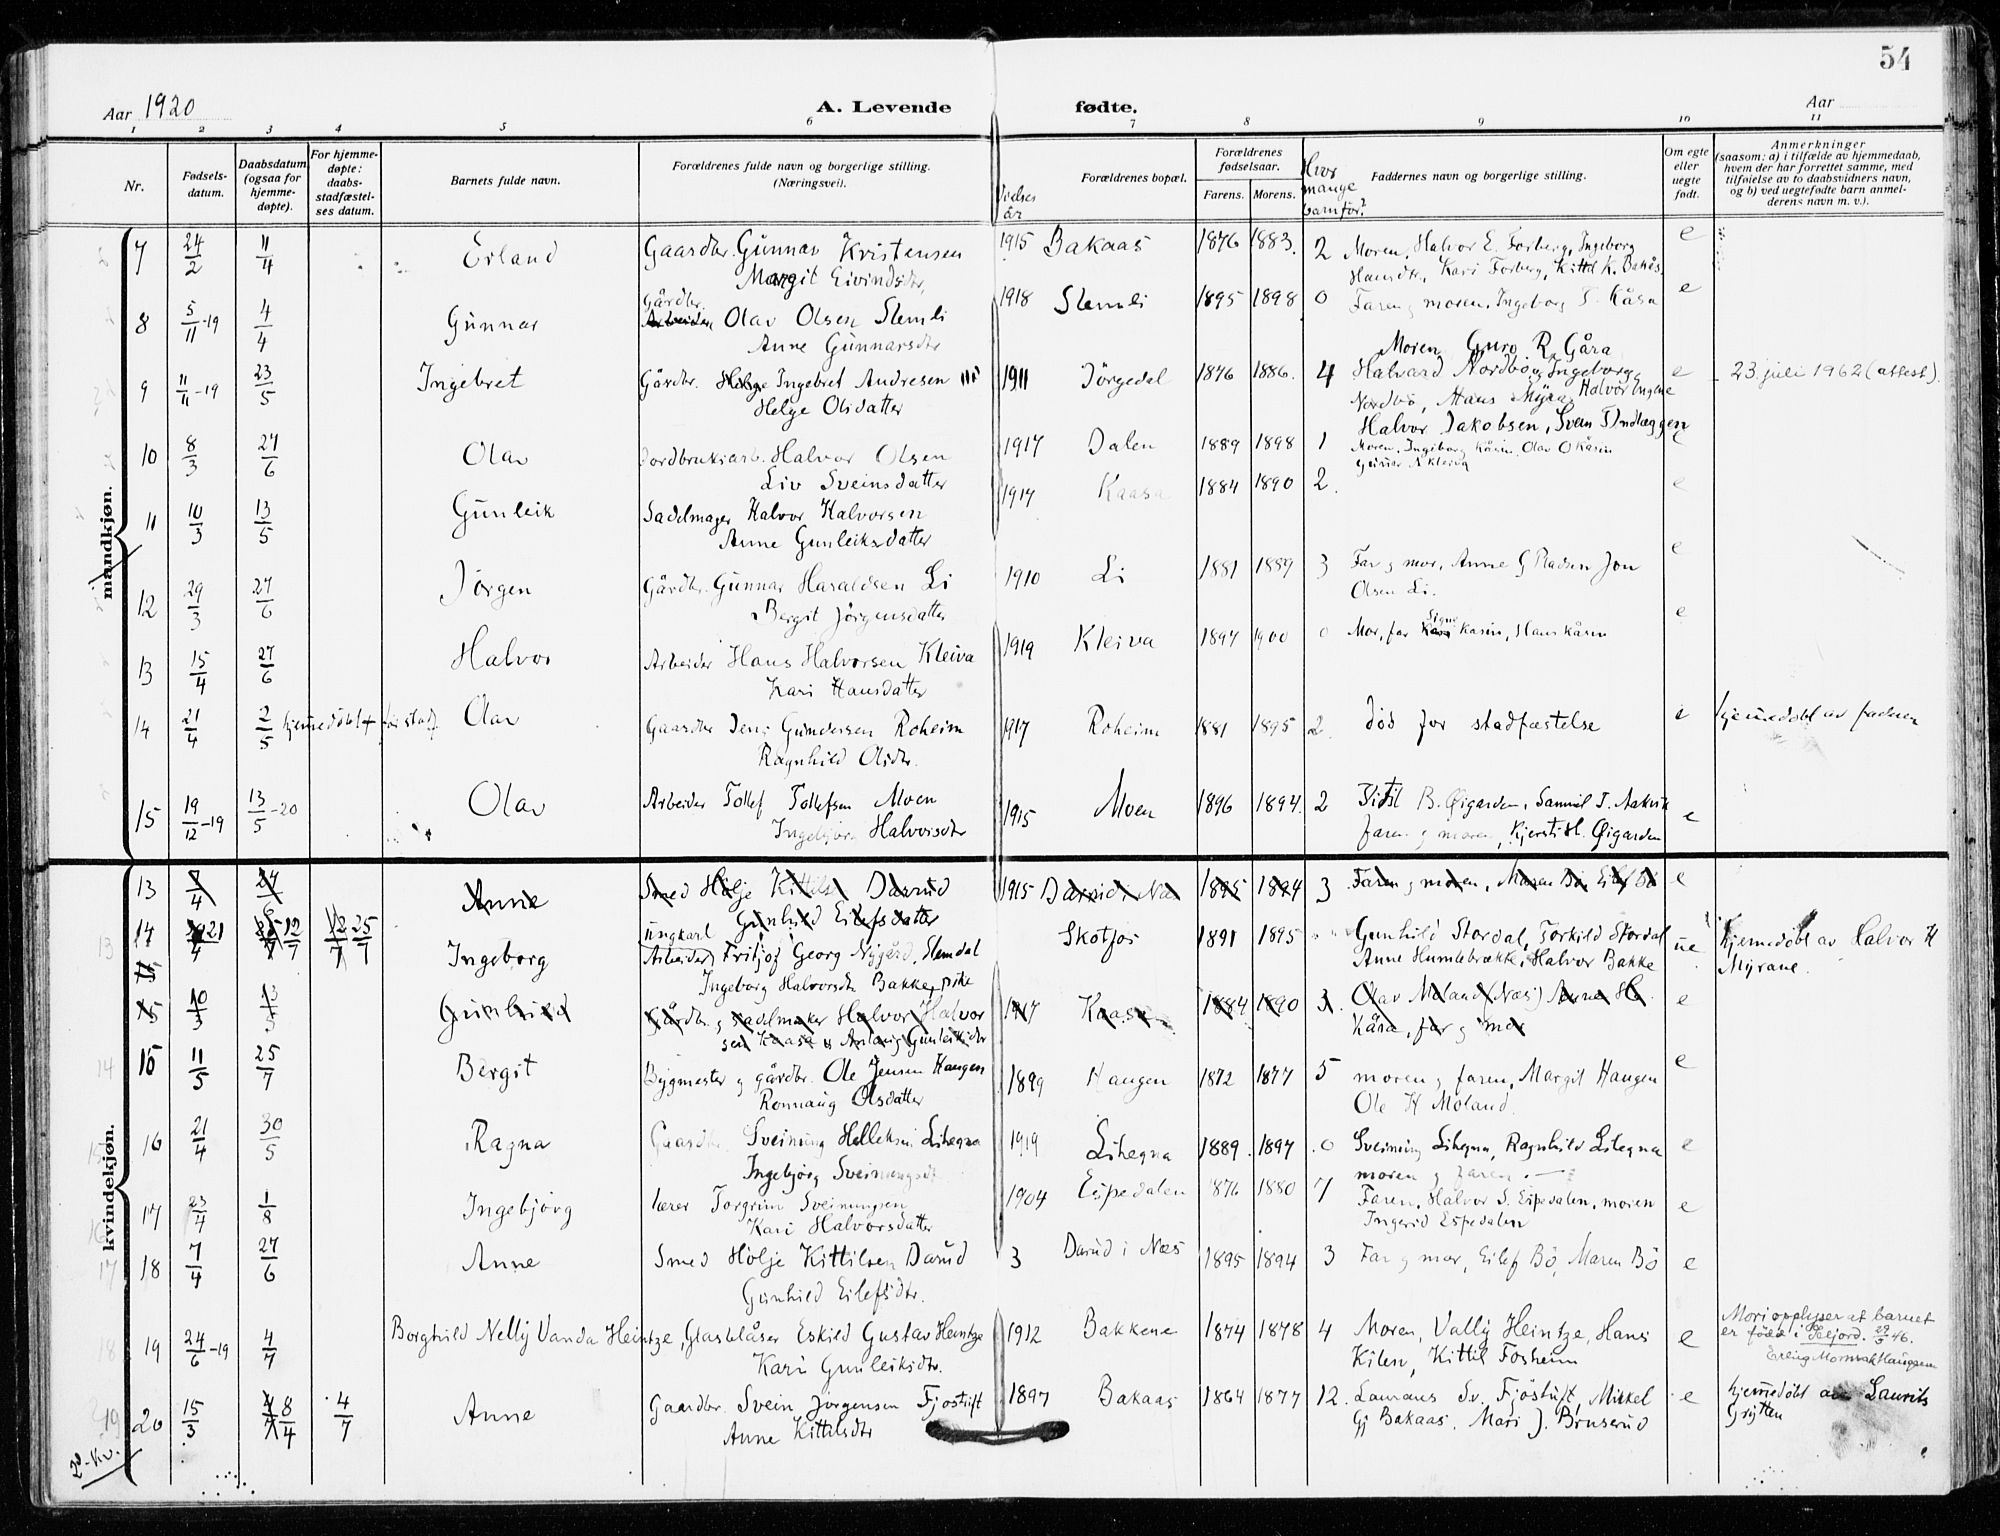 54
Aar 1920
A. Levende fødte.
Aar
1 2 3 4 5 6 7 8 9 10 11
Nr.
Fødsels-
datum.
Daabsdatum
(ogsaa for
hjemme-
døpte).
For hjemme-
døpte:
daabs-
stadfæstel-
ses datum.
Barnets fulde navn.
Forældrenes fulde navn og borgerlige stilling.
(Næringsvei).
Vielses
år
Forældrenes bopæl.
Forældrenes
fødselsaar.
Farens. Morens.
Hvor
mange
barn før?
Faddernes navn og borgerlige stilling.
Om egte
eller
uegte
født.
Anmerkninger
(saasom: a) i tilfælde av hjemmedaab,
hvem der har forrettet samme, med
tilføielse av to daabsvidners navn,
og b) ved uegtefødte barn anmel-
derens navn m. v.).
mandkjøn.
7 24/2 11/4 Erland Gaardbr. Gunnar Kristensen 1915 Bakaas 1876 1883. 2 Moren, Halvor E. Forberg, Ingeborg e
Margit Eivindsdtr. Hansdtr, Kari Forberg, Kittil K. Bakås
8 5/11-19 4/4 Gunnar Gårdbr. Olav Olsen Slemli 1918 Slemli 1895 1898 0 Faren og moren, Ingeborg T. Kåsa e
Anne Gunnarsdtr
Moren Guro R. Gåra
9 11/11-19 23/5 Ingebret Gårdbr. Ingebret Andresen 1911 Jörgedal 1876 1886. 4 Halvard Nordbö og Ingeborg e 23 juli 1962 (attest).
Helge Olsdatter Nordbö, Hans Myra, Halvor
Halvor Jakobsen, Svein
10 8/3 27/6 Olav Jordbruksarb. Halvor Olsen 1917 Dalen 1889 1898 1 Moren, Ingeborg Kåsin, Olav O Kåsin e
Liv Sveinsdatter Gunnar N Kleiva
11 10/3 13/5 Gunleik Sadelmager Halvor Halvorsen 1917 Kaasa 1884 1890 2. e
Anne Gunleiksdatter
12 29/3 27/6 Jörgen Gårdbr. Gunnar Haraldsen Li 1910 Li 1881 1889 3 Far og mor, Anne G Jon e
Bergit Jörgensdatter Olsen Li.
13 15/4 27/6 Halvor Arbeider Hans Halvorsen Kleiva 1919 Kleiva 1897 1900 0 Mor, far Signe Kasin, Hans Kåsin e
Kari Hansdatter
14 21/4 2/5 hjemmedöbt + før stadf Olav Gaardbr Jens Gundersen Roheim 1917 Roheim 1881 1895 2. död for stadfæstelse e hjemmedöbt av faderen
Ragnhild Olsdtr.
15 19/12-19 13/5-20 Olav Arbeider Tollef Tollefsen Moen 1915 Moen 1896 1894. 2 B. Øigarden, Samuel T. Aakvik e
Ingebjørg Halvorsdtr faren og moren, Kjersti H. Øigarden
kvindekjøn.
13 7/4 27/6 Anne Smed Hölje Kittilsn Darrud 1915 Darrud i Næs 1895 1894 3 Faren og moren, Maren Bö, Eilef Bö e
Gunhild Eilefsdatter
14 21/4 12/7 25/7 Ingeborg ungkarl Arbeider Fritjof Georg Nygård, Slemdal Skotfos 1891 1895 Gunhild Stordal, Torkild Stordal ue hjemmedöbt av Halvor H
Ingeborg Halvorsdtr Bakke, pike Anne Humlebrække, Halvor Bakke Myrane.
15 10/3 13/5 Gunhild Gårdbr. og sadelmaker Halvor Halvor 1917 Kaasa 1884 1890 3. Olav Moland (Næs) Anne H. e
sen Kaasa Gunleiksdtr Kåsa, far og mor
15 11/5 25/7 Bergit Bygmester og gårdbr. Ole Jensen Haugen 1899 Haugen 1872 1877 5 moren og faren, Margit Haugen e
Ronnaug Olsdatter Ole H Moland.
16 21/4 30/5 Ragna Gaardbr Sveinung Helleksen Lihegna 1919 Lihegna 1889. 1897 0 Sveinung Lihegna, Ragnhild Lihegna e
Ingebjörg Sveinungsdtr moren og faren.
17 23/4 1/8 Ingebjörg lærer Torgrim Sveinungsen 1904 Espedalen 1876 1880 7 Faren, Halvor S. Espedalen, moren e
Kari Halvorsdatter Ingerid Espedalen
18 7/4 27/6 Anne Smed Hölje Kittilsen Darud 3 Darud i Næs 1895 1894 3 Far og mor, Eilef Bö, Maren Bö e
Gunhild Eilefsdtr.
19 24/6-19 4/7 Borghild Nelly Vanda Heintze, Glasblåser Eskild Gustav Heintze 1912 Bakkene 1874 1878 4 Moren, Vally Heintze, Hans e Mor opplyser at barnet
Kari Gunleiksdtr. Kilen, Kittil Fosheim er född i Seljord. 29/5 46.
Erling Haugsen
20 15/3 8/4 4/7 Anne Gaardbr. Svein Jörgensen Fjöstuft 1897 Bakaas 1864 1877 12. Laurans Sv. Fjöstuft, Mikkel e hjemmedöbt av Laurits
Anne Kittilsdtr Gj Bakaas, Mari J. Bruserud Grytten